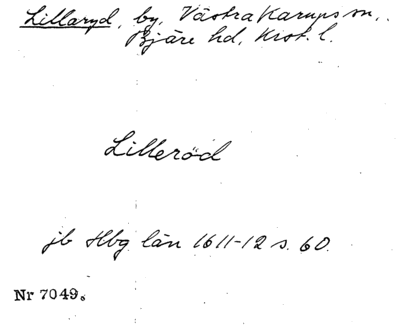 Lillaryd, by, Västra Karups sn,
Bjäre hd, Krist. l.
Lilleröd
jb Hbg län 1611-12 s. 60.
Nr 7049.